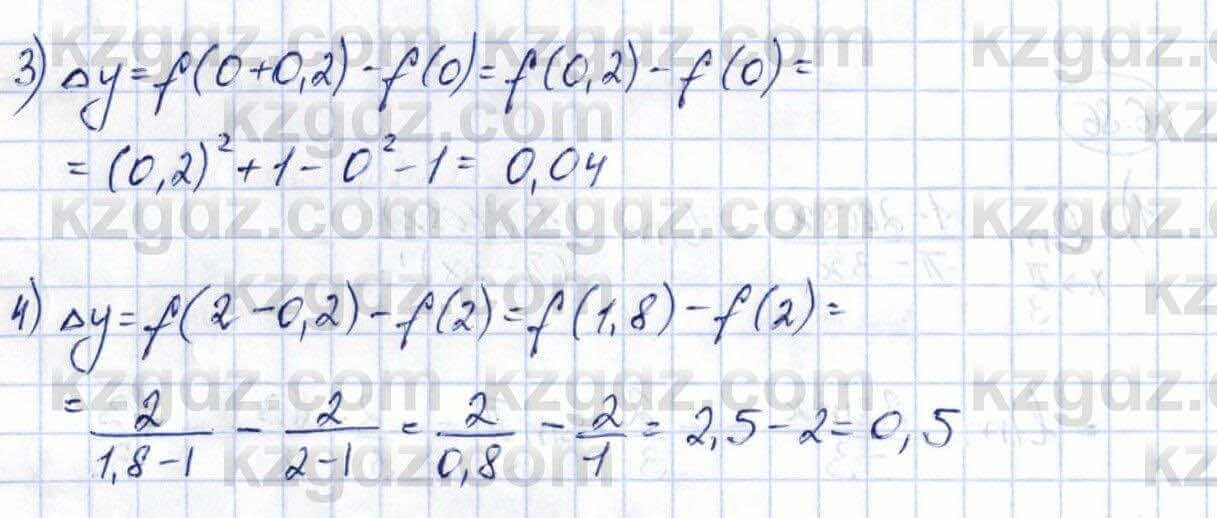 3) Δy = f(0+0,2) - f(0) = f(0,2) - f(0) =
= (0,2)² + 1 - 0² - 1 = 0,04
4) Δy = f(2-0,2) - f(2) = f(1,8) - f(2) =
= 2/(1,8-1) - 2/(2-1) = 2/0,8 - 2/1 = 2,5 - 2 = 0,5
kzgdz.com